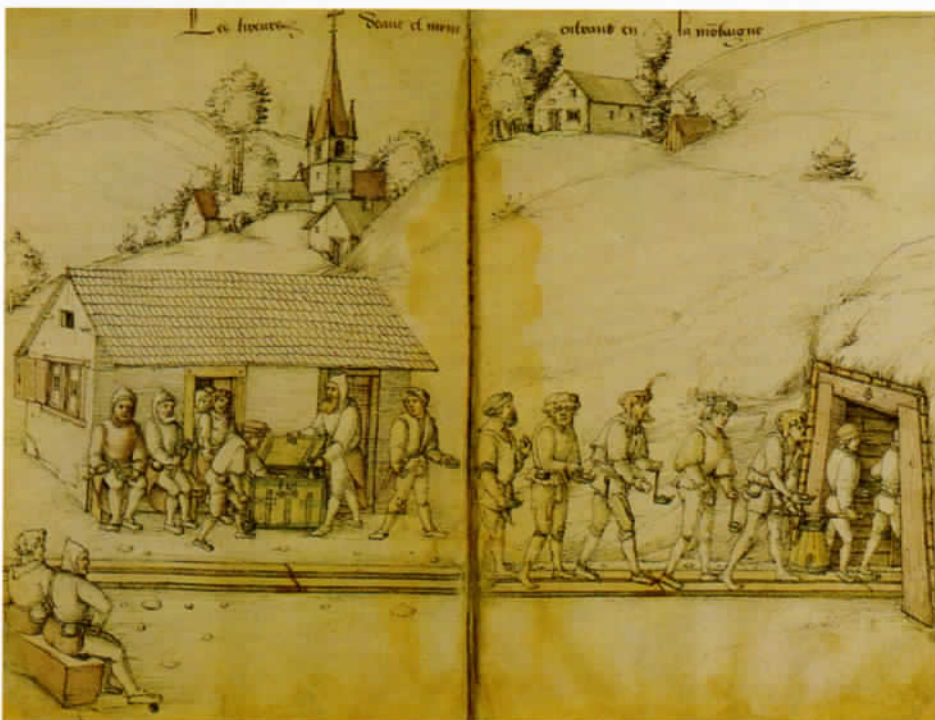 Les tireurs deaue et menu entrans en la mõtaigne